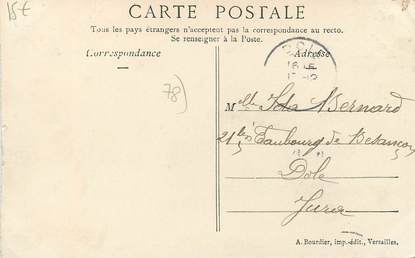 15€
CARTE POSTALE
Tous les pays étrangers n'acceptent pas la correspondance au recto.
Se renseigner à la Poste.
Correspondance
Adresse
78)
Melle Ida Bernard
21bis Faubourg de Besançon
Dole
Jura
A. Bourdier, imp.-édit., Versailles.